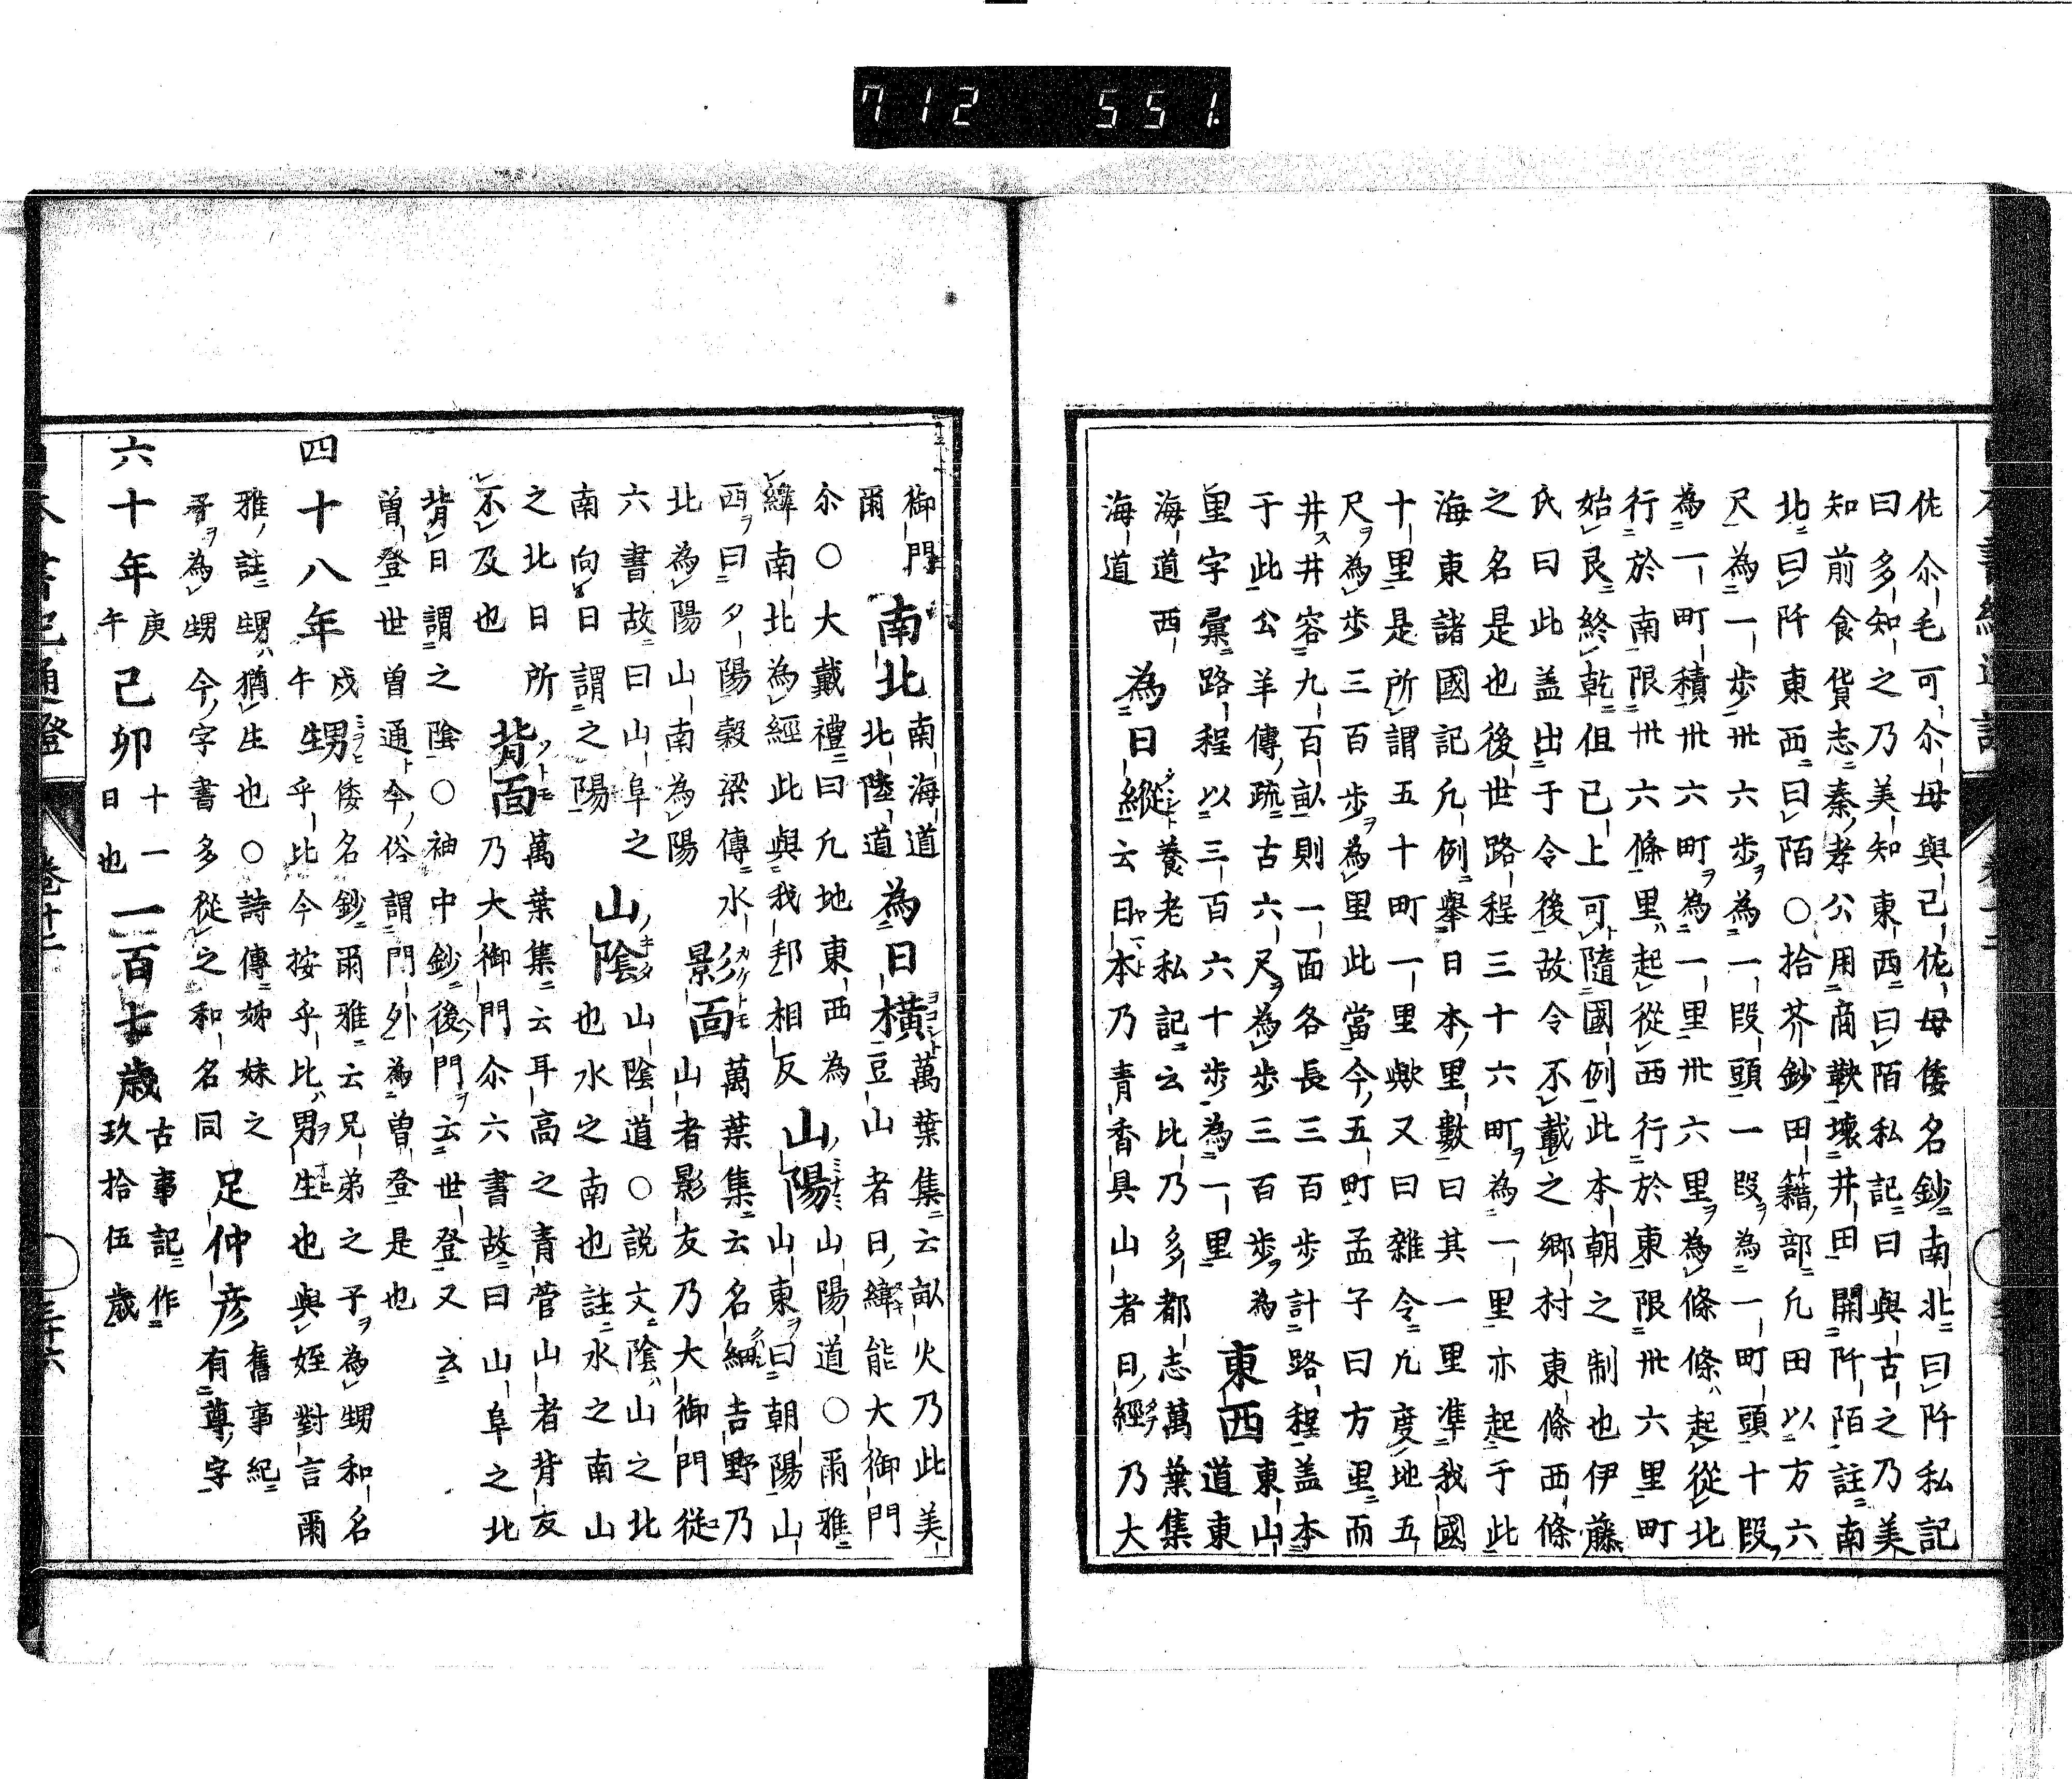 712 551.
佐尒毛可尒母與己佐母倭名鈔南北曰阡私記
曰多知之乃美知東西曰陌私記曰與古之乃美
知前食貨志秦孝公用商鞅壞井田開阡陌註南
北曰阡東西曰陌○拾芥鈔田籍部凢田以方六
尺為一步卅六步為一段頭一段為一町頭十段
為一町積卅六町為一里卅六里為條條起從北
行於南限卅六條里起從西行於東限卅六里町
始艮終乾但已上可隨國例此本朝之制也伊藤
氏曰此盖出于令後故令不載之鄉村東條西條
之名是也後世路程三十六町為一里亦起于此
海東諸國記凢例舉日本里數曰其一里準我國
十里是所謂五十町一里歟又曰雜令凢度地五
尺為步三百步為里此當今五町孟子曰方里而
井井容九百畝則一面各長三百步計路程盖本
于此公羊傳疏古六尺為步三百步為
里字彙路程以三百六十步為一里
東西
東山
道東
海道西
海道
為日縱
養老私記云比乃多都志萬葉集
云日本乃青香具山者日經乃大
御門
爾
南北
南海道
北陸道
為日橫
萬葉集云畝火乃此美
豆山者日緯能大御門
尒○大戴禮曰凢地東西為
緯南北為經此與我邦相反
山陽
山陽道○爾雅
山東曰朝陽山
西曰夕陽榖梁傳水
北為陽山南為陽
影面
萬葉集云名細吉野乃
山者影友乃大御門從
六書故曰山阜之
南向日謂之陽
山陰
山陰道○說文陰山之北
也水之南也註水之南山
之北日所
不及也
背面
萬葉集云耳高之青菅山者背友
乃大御門尒六書故曰山阜之北
背日謂之陰○袖中鈔後門云世登又云
曾登世曾通今俗謂門外為曾登是也
四十八年
戊
午
甥
倭名鈔爾雅云兄弟之子為甥和名
乎比今按乎比男生也與姪對言爾
雅註甥猶生也○詩傳姊妹之
子為甥今字書多從之和名同
足仲彦
舊事紀
有尊字
六十年
庚
午
己卯
十一
日也
一百七歲
古事記作
玖拾伍歲